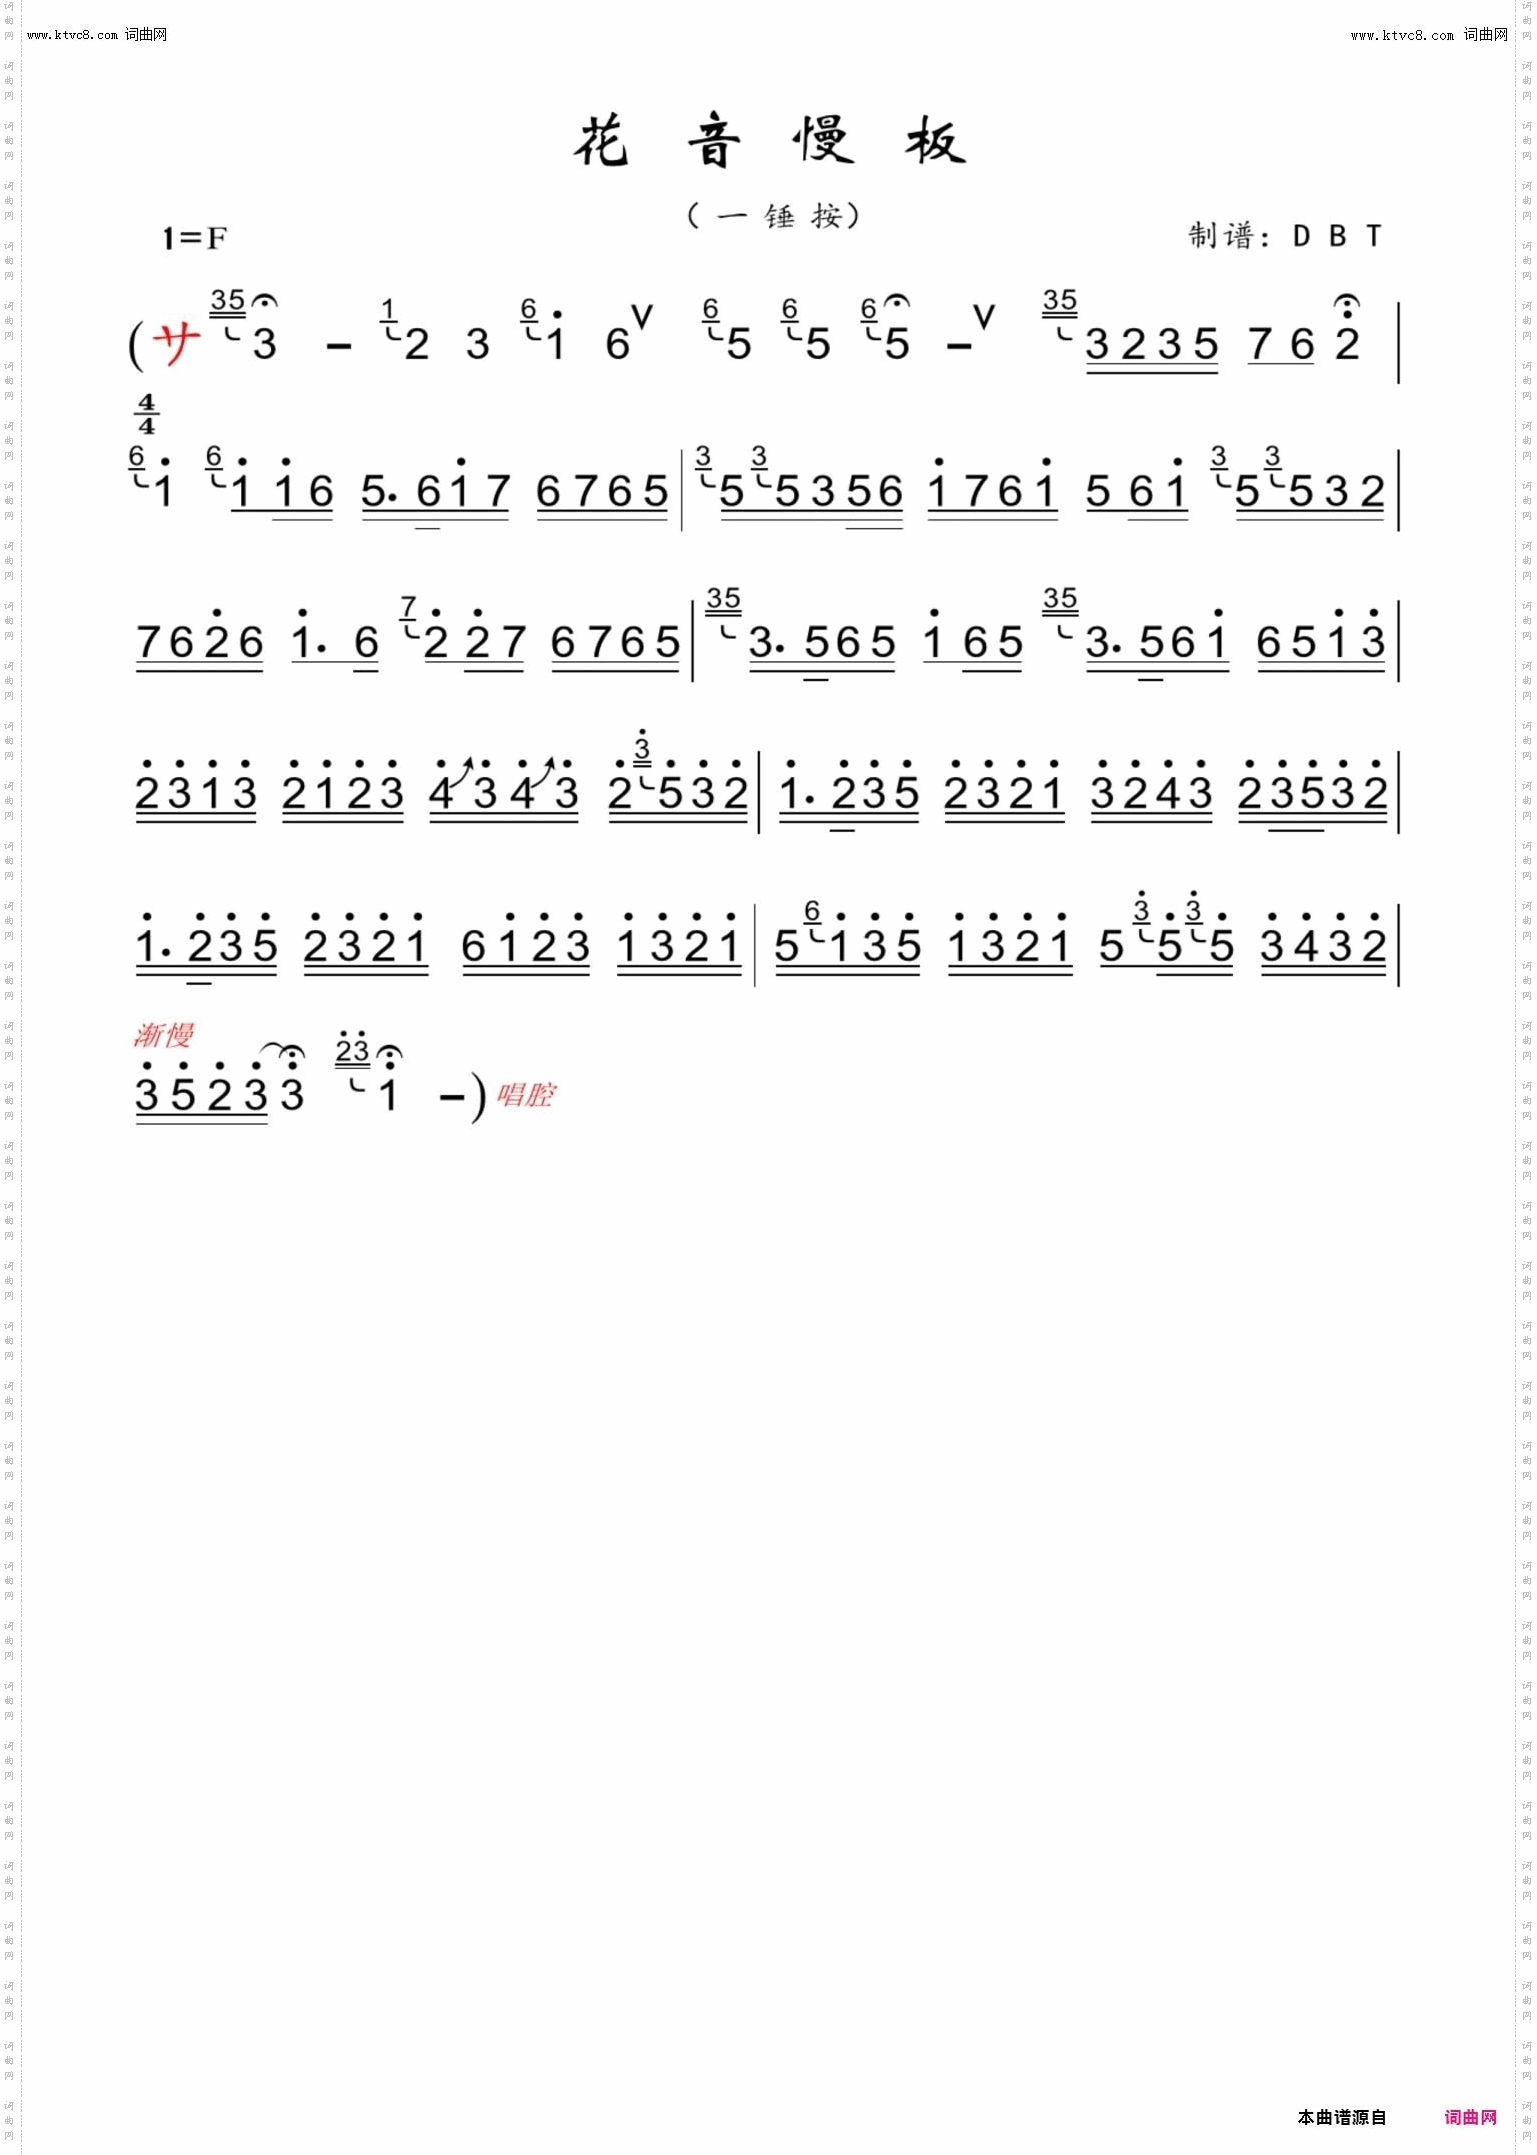 www.ktvc8.com 词曲网 www.ktvc8.com 词曲网
花音慢板
（一锤按）
1=F 制谱：DBT
(サ 35 3 - 1 2 3 6 1 6 V 6 5 6 5 6 5 - V 35 3235 76 2
4/4
6 1 6 1 16 5. 617 6765 | 3 5 3 5356 1761 5 61 3 5 3 532 |
7626 1. 6 7 2 27 6765 | 35 3. 565 1 65 35 3. 561 6513 |
2313 2123 4343 2 3 532 | 1. 235 2321 3243 23532 |
1. 235 2321 6123 1321 | 5 6 135 1321 5 3 5 3 5 3432 |
渐慢
3523 3 23 1 -) 唱腔
本曲谱源自 词曲网